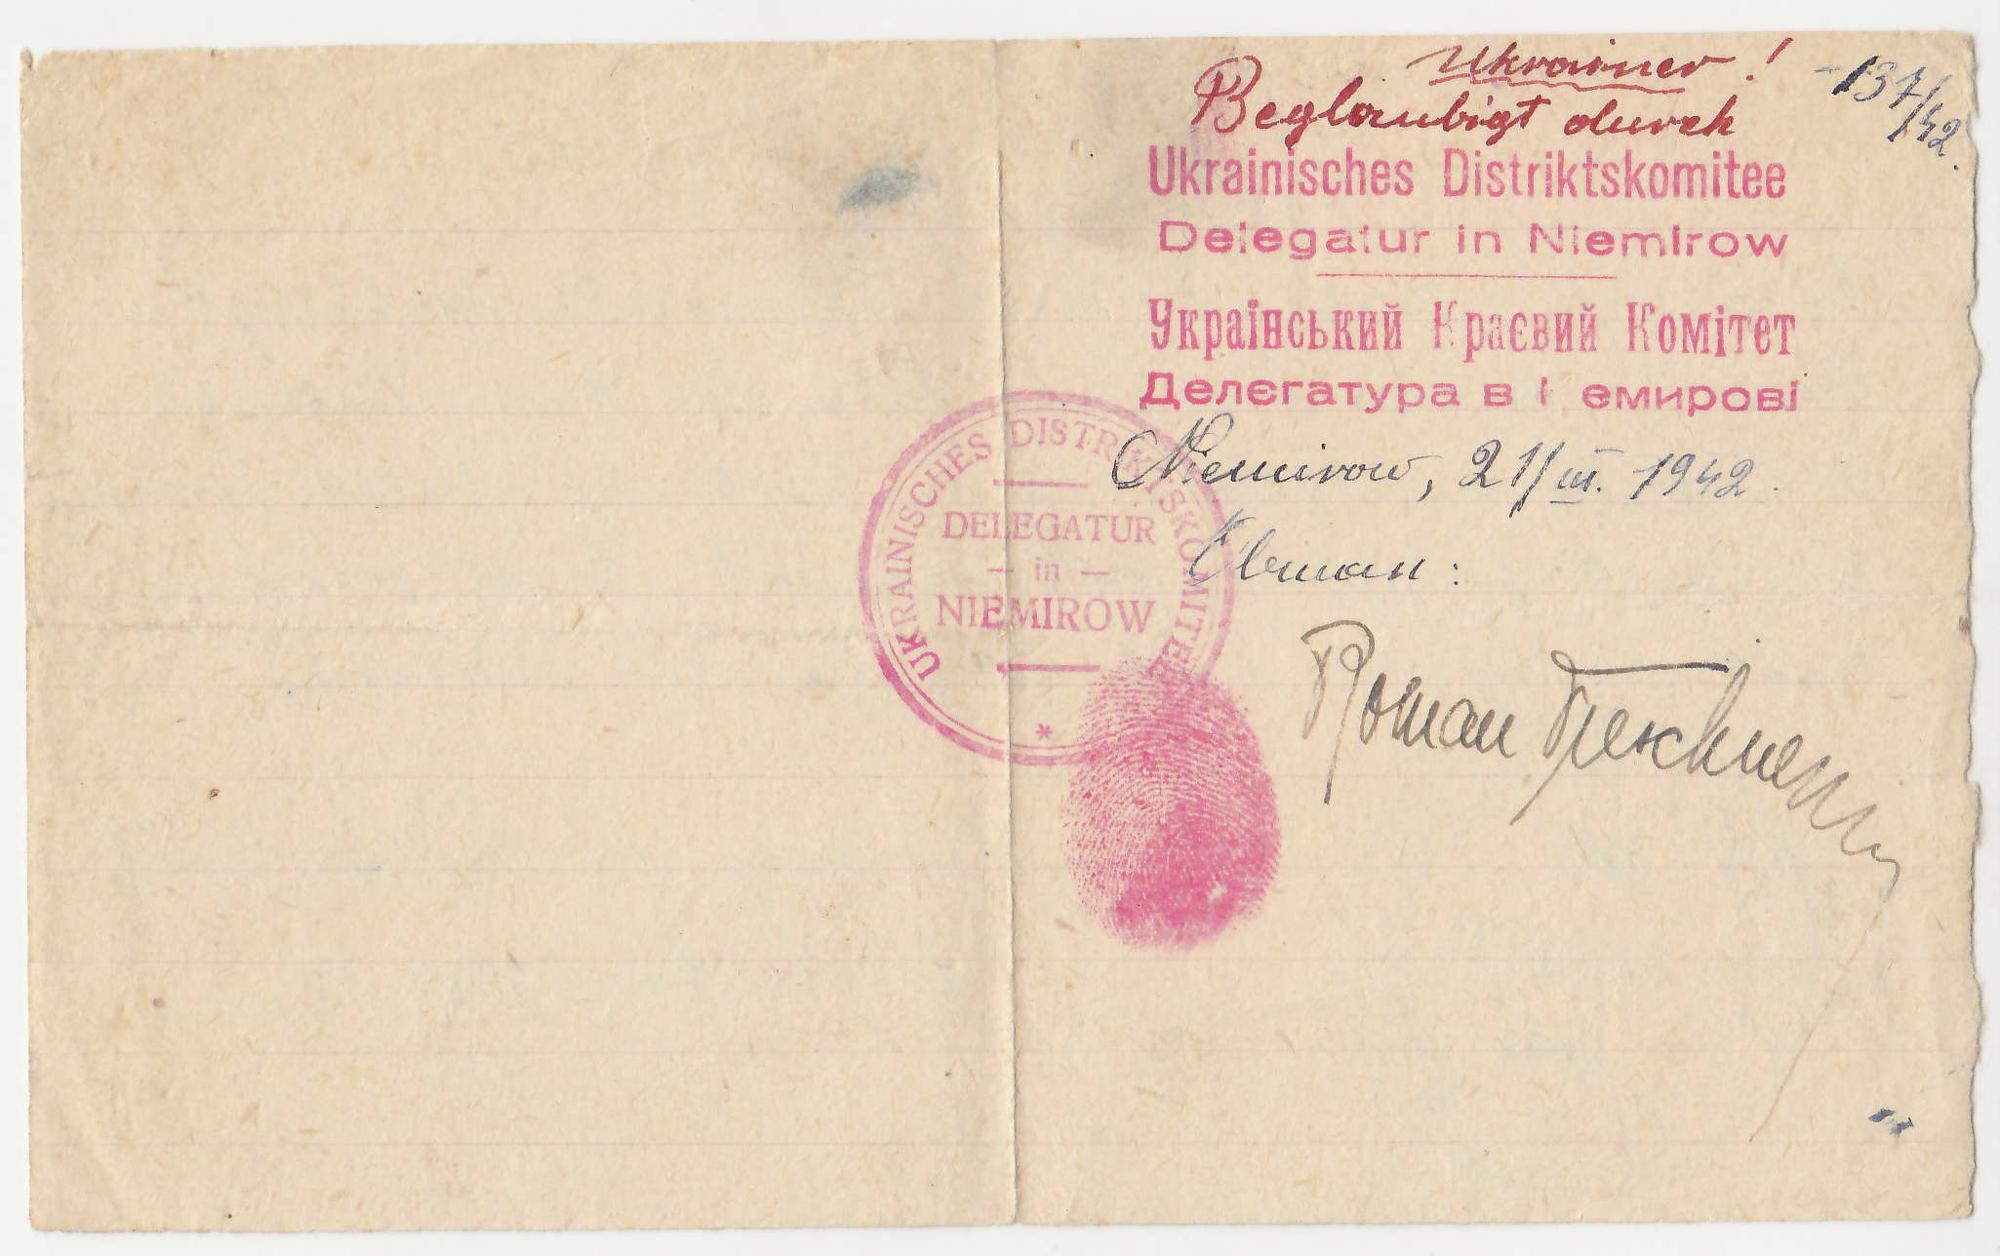 Ukrainer!
-137/42.
Beglaubigt durch
Ukrainisches Distriktskomitee
Delegatur in Niemirow
Український Краєвий Комітет
Делєгатура в Н емирові
Niemirow, 21/III. 1942.
Obman:
Roman
UKRAINISCHES DISTRIKTSKOMITEE
DELEGATUR
- in -
NIEMIROW
*